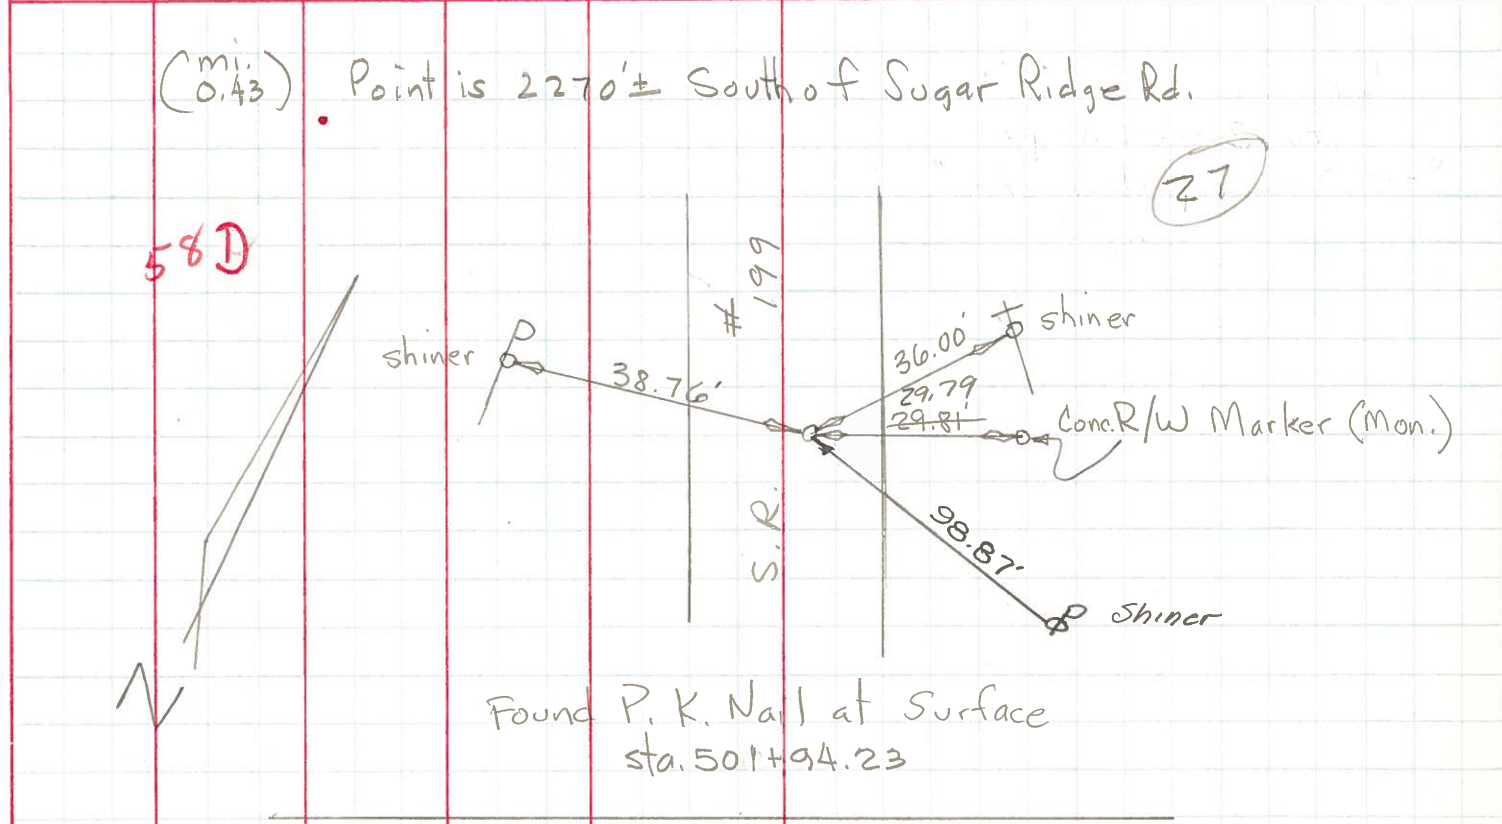 (mi. 0.43) Point is 2270'± South of Sugar Ridge Rd.
27
58D
# 199
shiner
shiner
36.00'
38.76'
29.79
29.81'
Conc. R/W Marker (Mon.)
S.R.
98.87'
Shiner
N
Found P. K. Nail at Surface
sta. 501+94.23